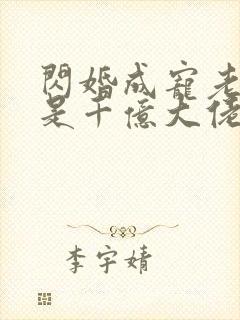 閃婚成寵老
是千億大佬
李宇婧